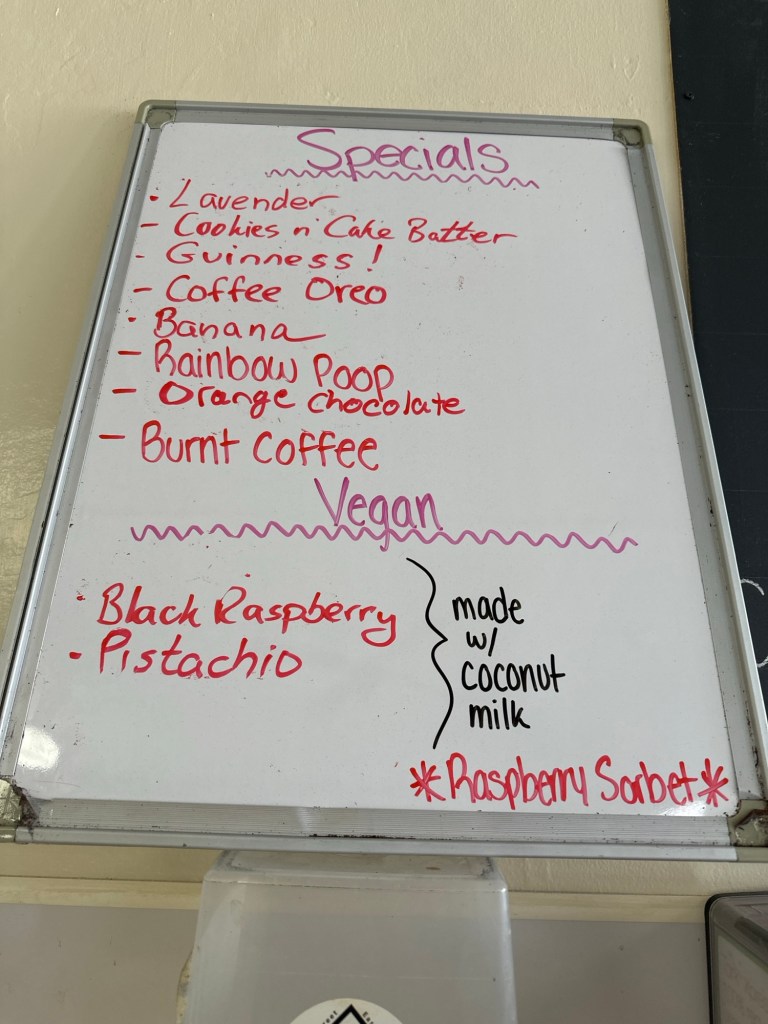 Specials
· Lavender
- Cookies n' Cake Batter
- Guinness!
- Coffee Oreo
· Banana
- Rainbow Poop
- Orange chocolate
- Burnt Coffee
Vegan
· Black Raspberry
- Pistachio
made
w/
coconut
milk
*Raspberry Sorbet*